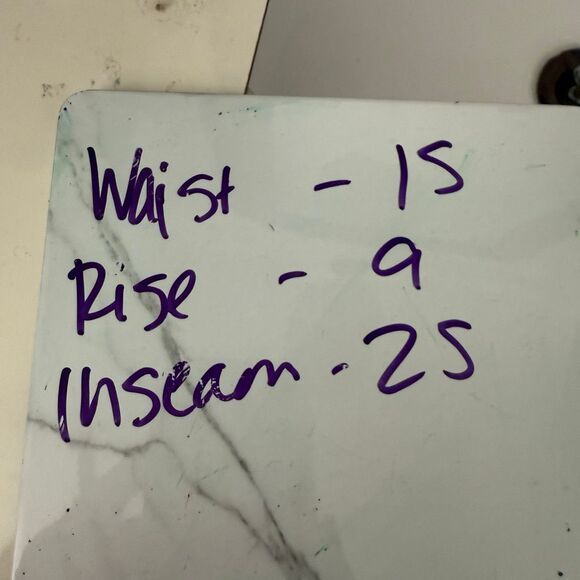 Waist - 15
Rise - 9
Inseam - 25